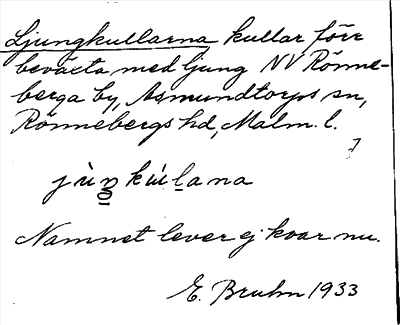 Ljungkullarna kullar förr
beväxta med ljung NV Rönne-
berga by, Asmundtorps sn,
Rönnebergs hd, Malm. l.
jùŋkúl̠a na
Namnet lever ej kvar nu.
E. Bruhn 1933